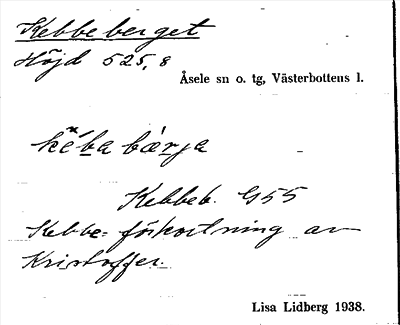 Kebbeberget
Höjd 525,8
Åsele sn o. tg, Västerbottens l.
kéba bárja
Kebbeb. G55
Kebbe- förkortning av
Kristoffer.
Lisa Lidberg 1938.